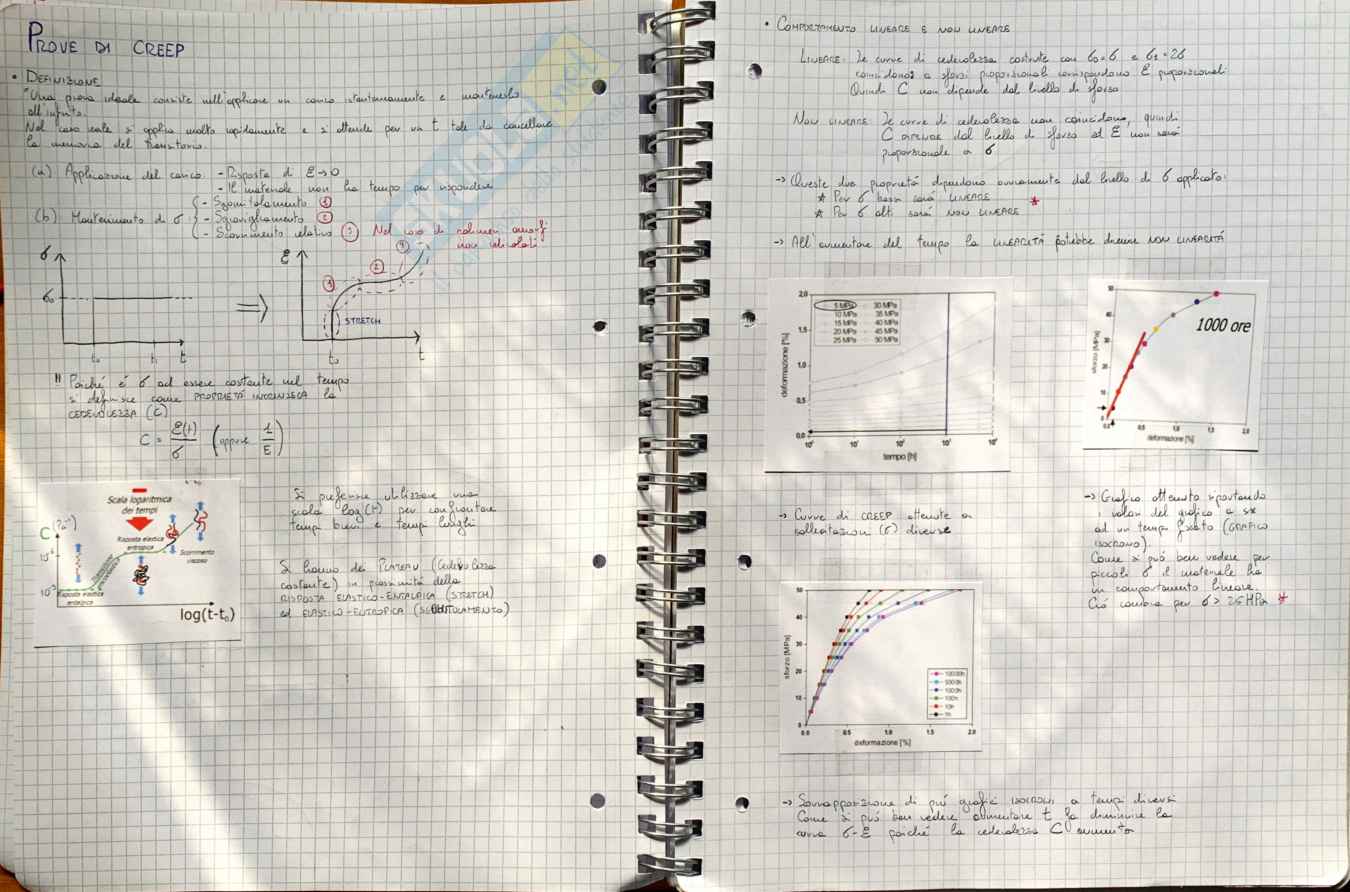 PROVE DI CREEP
• DEFINIZIONE
"Una prova ideale consiste nell'applicare un carico istantaneamente e mantenerlo
all'infinito.
Nel caso reale si applica molto rapidamente e si attende per un t tale da cancellare
la memoria del transitorio.
(a) Applicazione del carico - Risposta di ε→0
- Il materiale non ha tempo per rispondere
- Sgomitolamento ①
(b) Mantenimento di σ - Sgrovigliamento ②
- Scorrimento relativo ③ Nel caso di polimeri amorfi
non reticolati
σ
σ₀
t₀ t₁ t
⇒
ε
① ② ③
STRETCH
t₀ t
!! Poiché è σ ad essere costante nel tempo
si definisce come PROPRIETÀ INTRINSECA la
CEDEVOLEZZA (C)
C = ε(t)/σ (oppure 1/E)
Scala logaritmica
dei tempi
C (Pa⁻¹)
Risposta elastica
entropica
Scorrimento
viscoso
Risposta elastica
entalpica
log(t-t₀)
Si preferisce utilizzare una
scala log(t) per confrontare
tempi brevi e tempi lunghi
Si hanno dei PLATEAU (Cedevolezza
costante) in prossimità della
RISPOSTA ELASTICO-ENTALPICA (STRETCH)
ed ELASTICO-ENTROPICA (SGOMITOLAMENTO)
• COMPORTAMENTO LINEARE E NON LINEARE
LINEARE: Le curve di cedevolezza costruite con σ₀=σ e σ₁=2σ
coincidono: a sforzi proporzionali corrispondono ε proporzionali.
Quindi C non dipende dal livello di sforzo
NON LINEARE: Le curve di cedevolezza non coincidono, quindi
C dipende dal livello di sforzo ed ε non sarà
proporzionale a σ
→ Queste due proprietà dipendono ovviamente dal livello di σ applicato:
* Per σ bassi sarà LINEARE *
* Per σ alti sarà NON LINEARE
→ All'aumentare del tempo la LINEARITÀ potrebbe divenire NON LINEARITÀ
2.0
1.5
1.0
0.5
0.0
deformazione [%]
5 MPa 30 MPa
10 MPa 35 MPa
15 MPa 40 MPa
20 MPa 45 MPa
25 MPa 50 MPa
tempo [h]
50
40
30
20
10
0
sforzo [MPa]
1000 ore
0.0 0.5 1.0 1.5 2.0
deformazione [%]
→ Curve di CREEP ottenute a
sollecitazioni (σ) diverse
→ Grafico ottenuto riportando
i valori del grafico a sx
ad un tempo fissato (GRAFICO
ISOCRONO).
Come si può ben vedere per
piccoli σ il materiale ha
un comportamento lineare.
Ciò cambia per σ > 25 MPa *
50
40
30
20
10
0
sforzo [MPa]
10000h
5000h
1000h
100h
10h
1h
0.0 0.5 1.0 1.5 2.0
deformazione [%]
→ Sovrapposizione di più grafici ISOCRONI a tempi diversi
Come si può ben vedere aumentare t fa diminuire la
curva σ-ε poiché la cedevolezza C aumenta